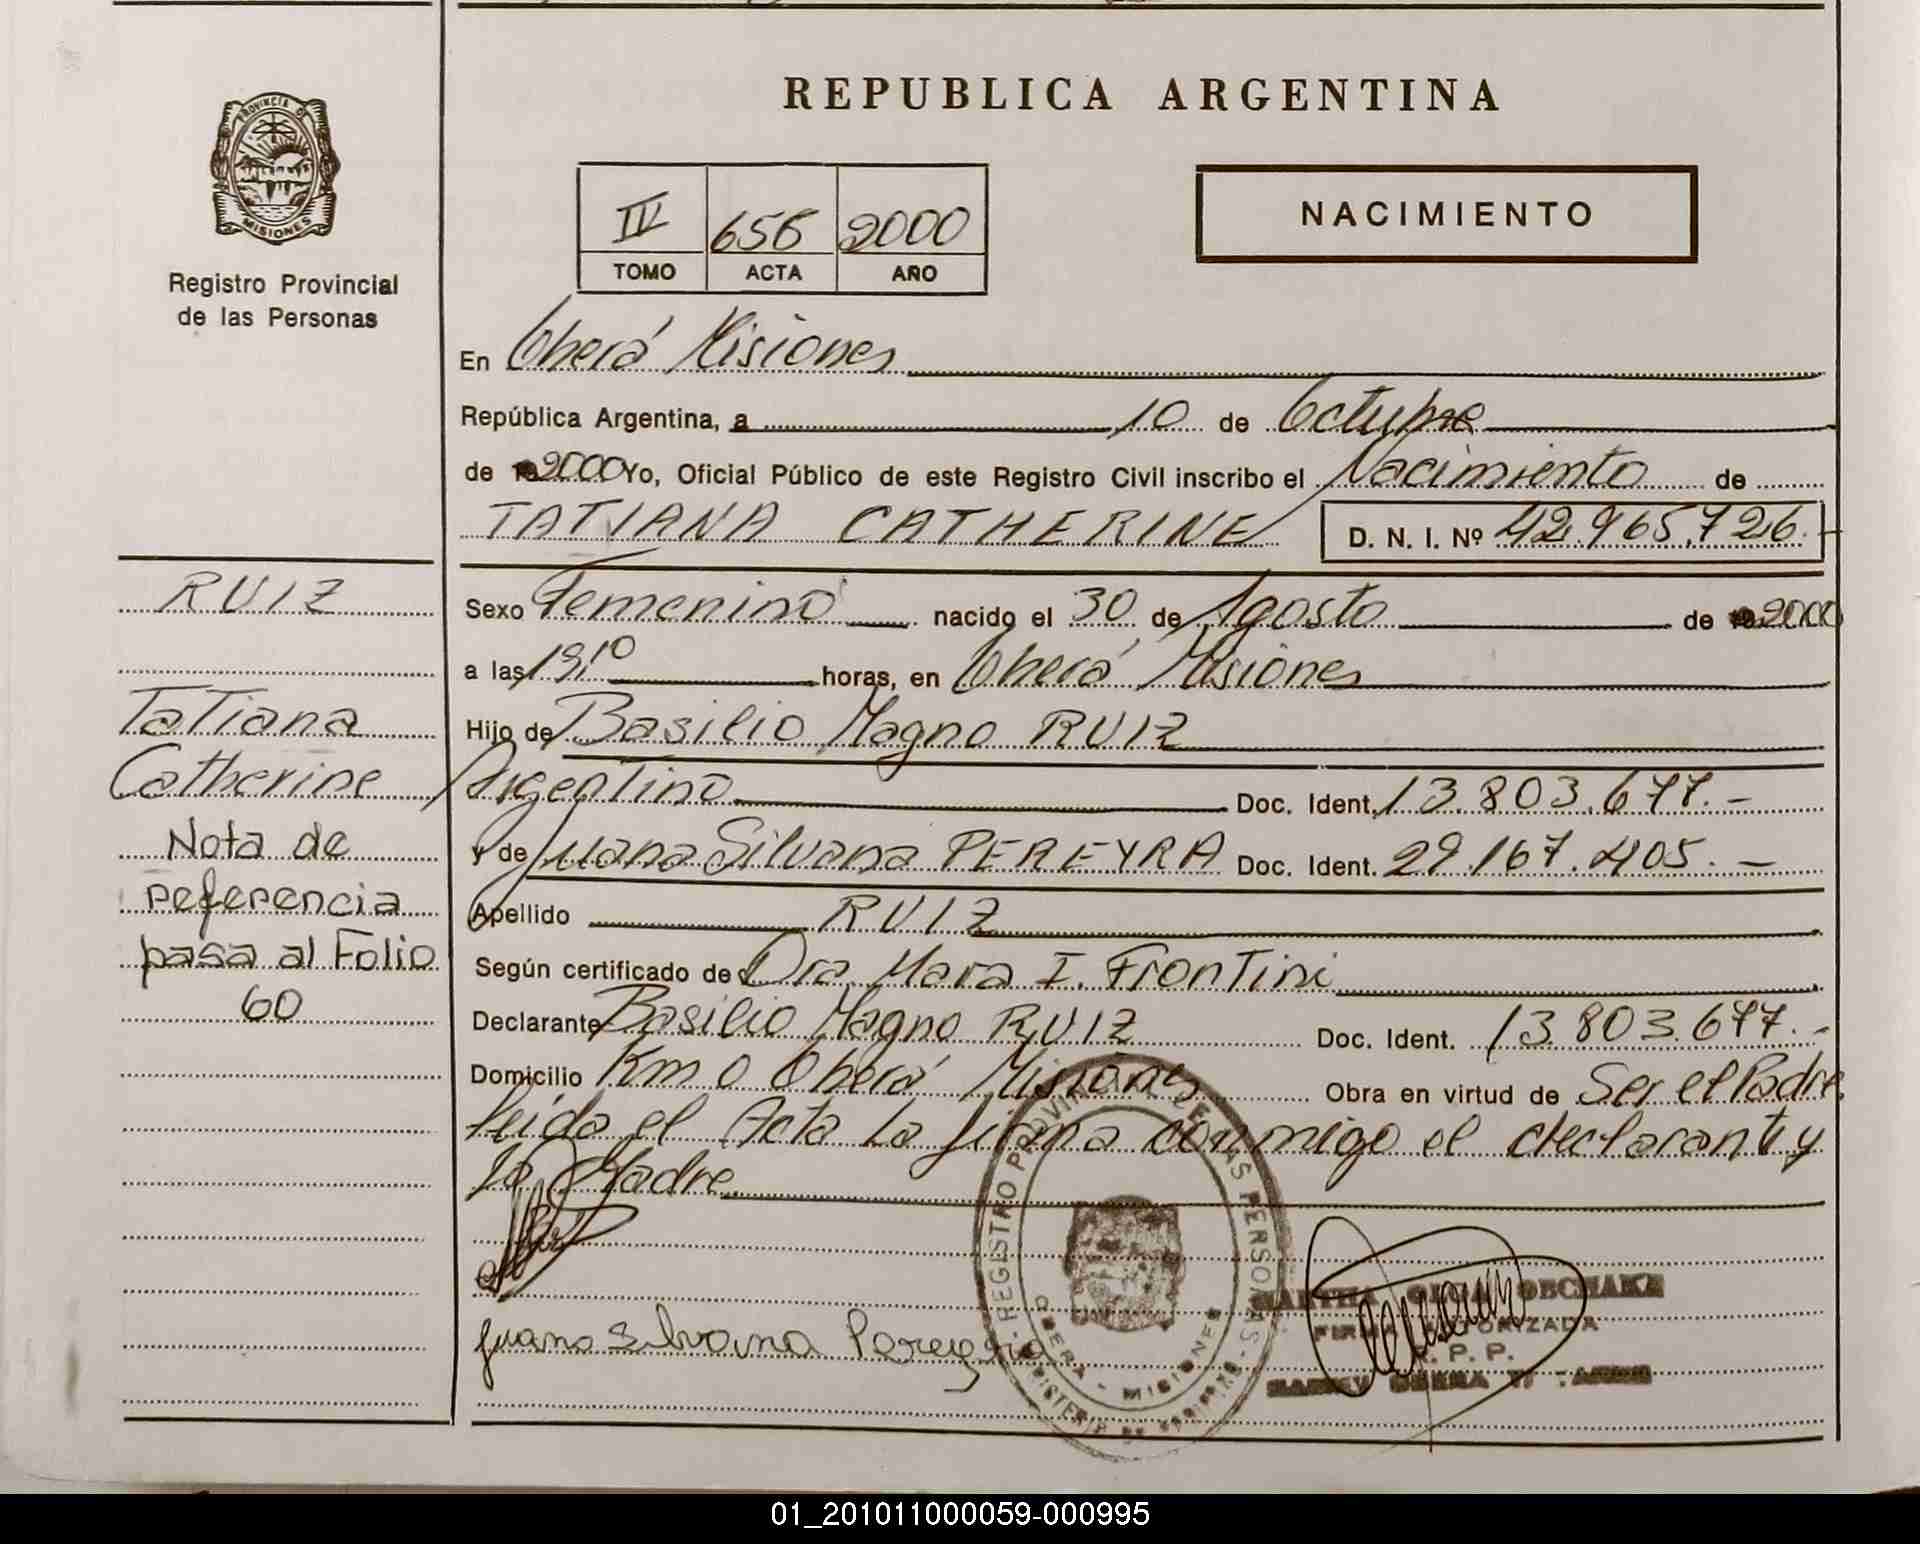 PROVINCIA DE
MISIONES
Registro Provincial
de las Personas
REPUBLICA ARGENTINA
IV 656 2000
TOMO ACTA AÑO
NACIMIENTO
En Oberá Misiones
República Argentina, a 10 de Octubre
de 2000 Yo, Oficial Público de este Registro Civil inscribo el Nacimiento de
TATIANA CATHERINE D. N. I. Nº 42.965.726.-
Sexo Femenino nacido el 30 de Agosto de 2000
a las 19,10 horas, en Oberá Misiones
Hijo de Basilio Magno RUIZ
Argentino Doc. Ident. 13.803.677.-
y de Juana Silvana PEREYRA Doc. Ident. 29.167.405.-
Apellido RUIZ
Según certificado de Dra Mara I. Frontini
Declarante Basilio Magno RUIZ Doc. Ident. 13.803.677.-
Domicilio Km 0 Oberá Misiones Obra en virtud de Ser el Padre
leida el Acta la firma conmigo el declarante y
la Madre
RUIZ
Tatiana
Catherine
Nota de
referencia
pasa al Folio
60
Juana Silvana Pereyra
REGISTRO PROVINCIAL DE LAS PERSONAS
OBERA - MISIONES
MARTHA OLGA
FIRMA AUTORIZADA
R. P. P.
01_201011000059-000995